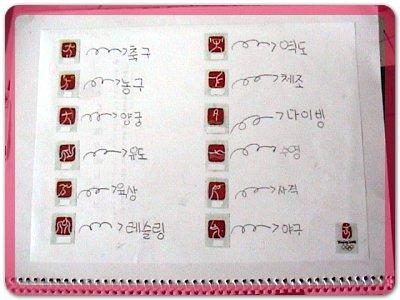 축구
농구
양궁
유도
육상
레슬링
역도
체조
다이빙
수영
사격
야구
Beijing 2008